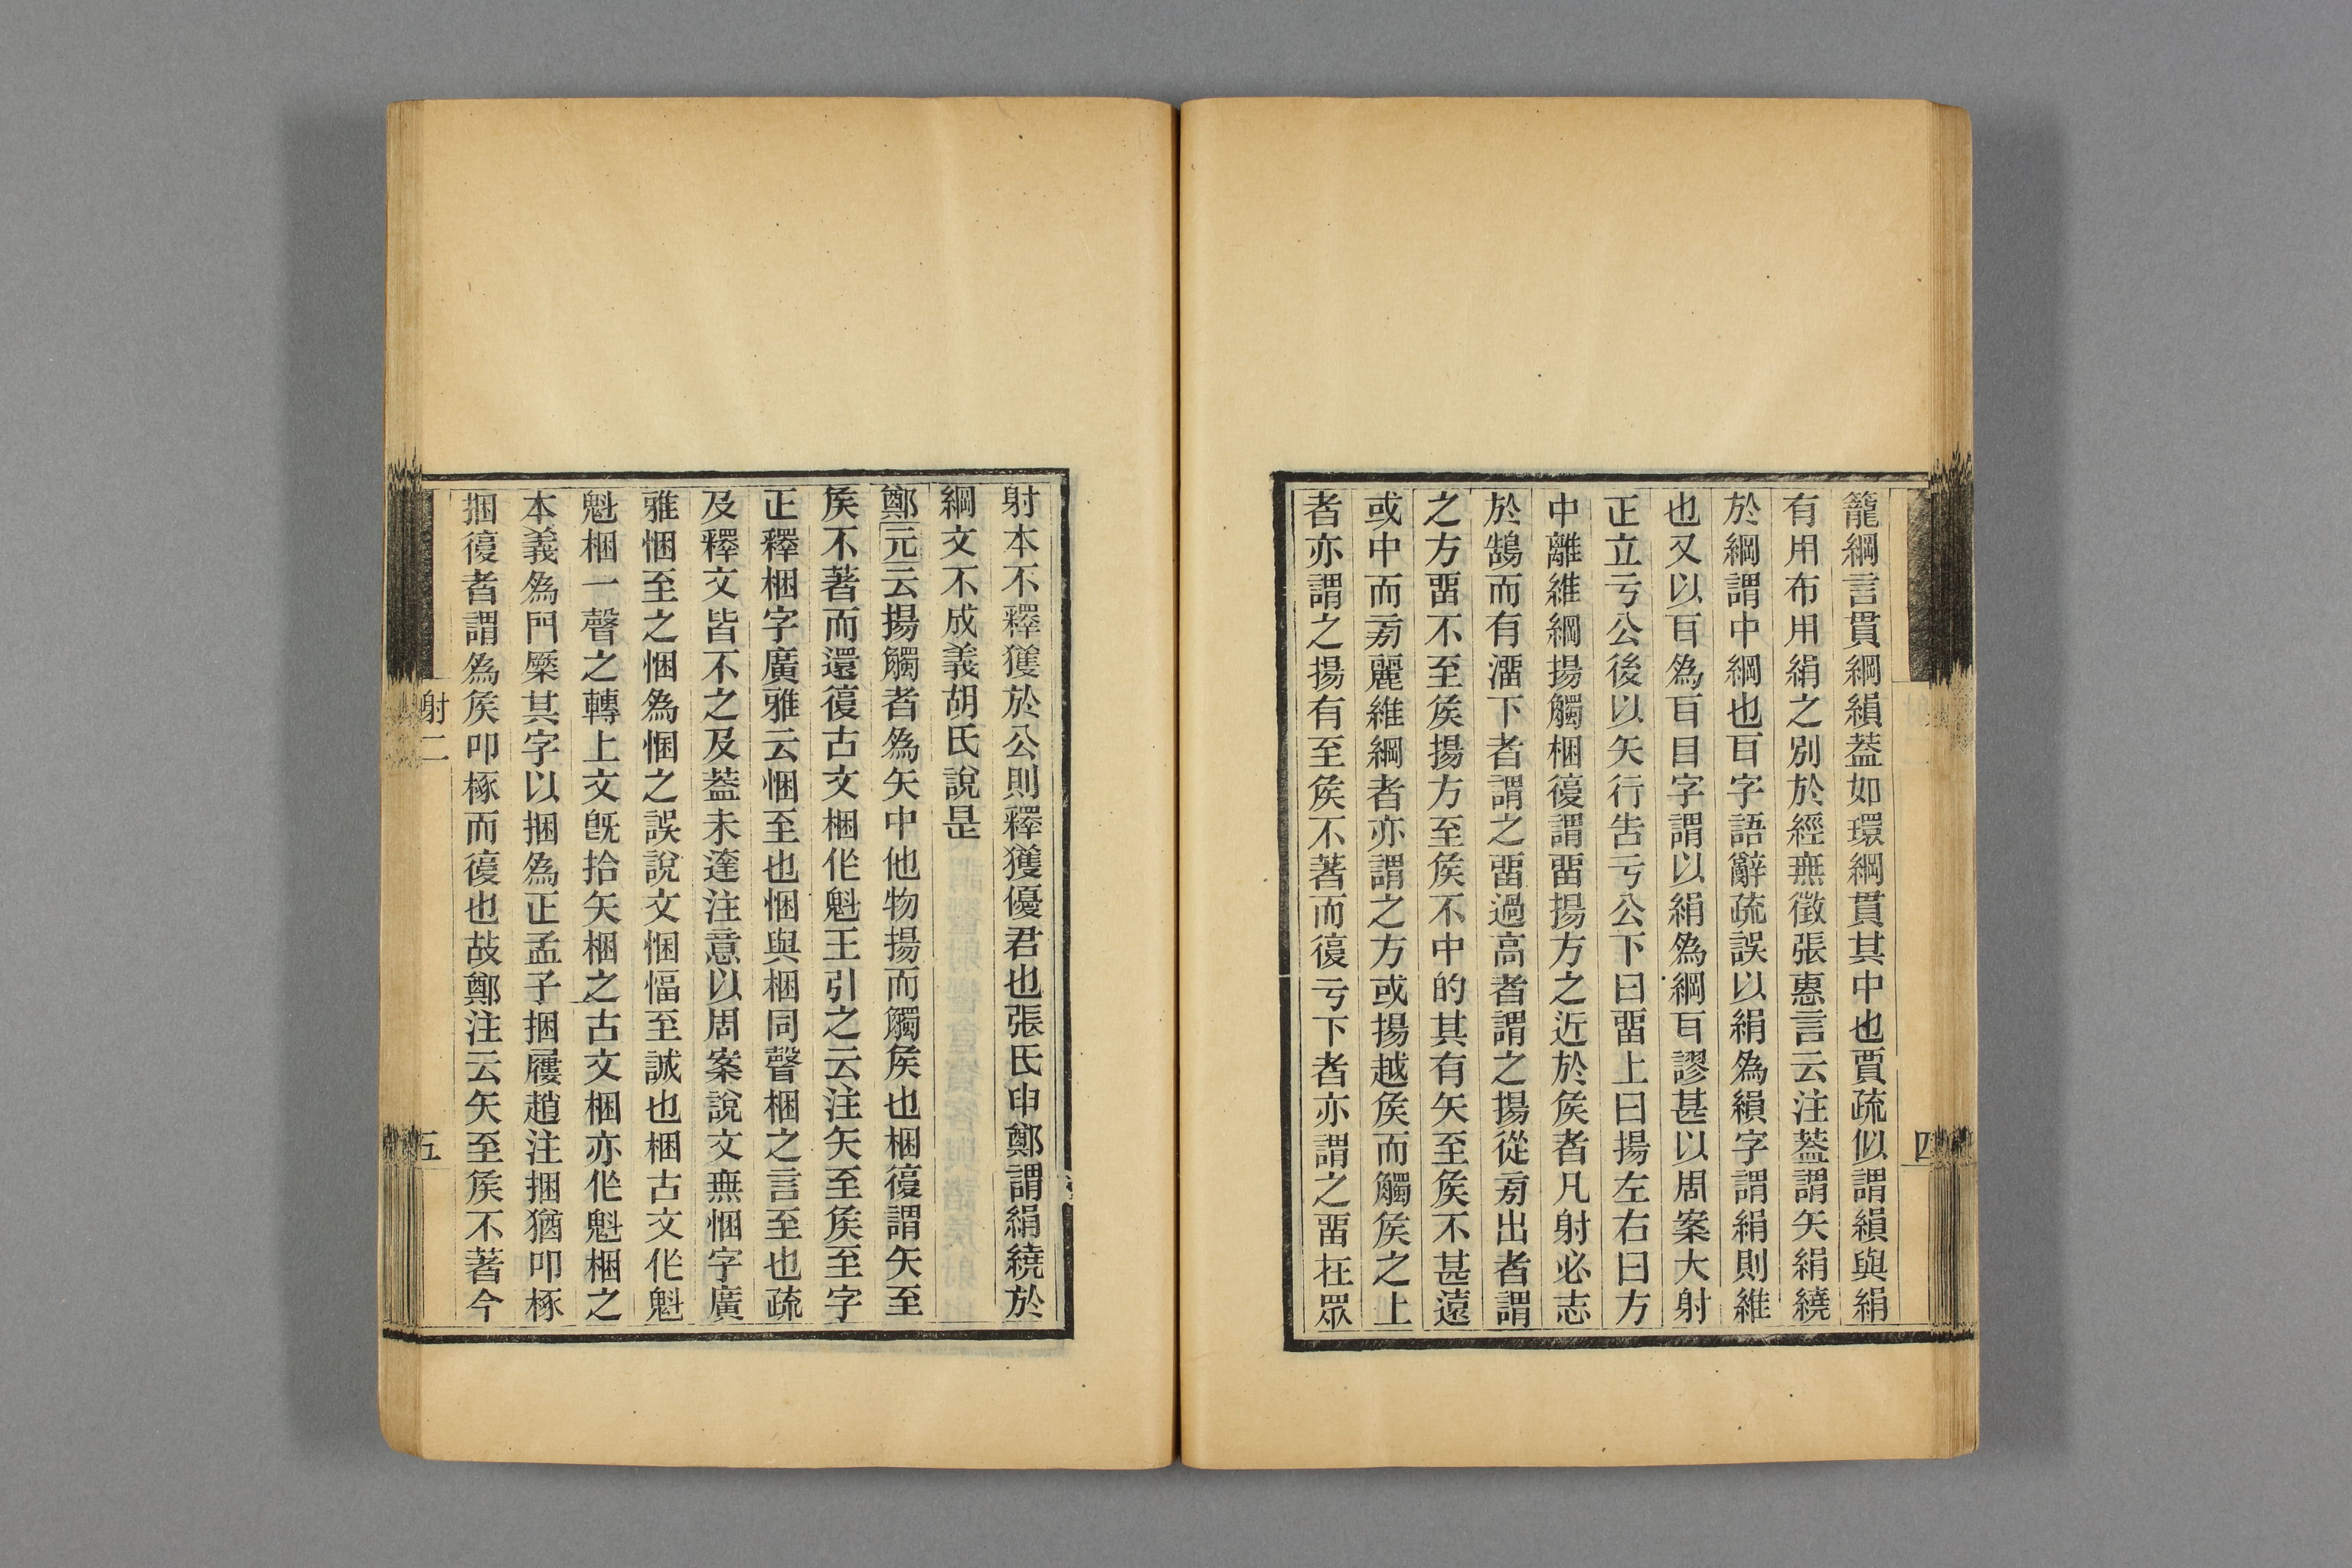 籠綱言貫綱縜葢如環綱貫其中也賈疏似謂縜與絹
有用布用絹之別於經無徵張惠言云注葢謂矢絹繞
於綱謂中綱也㫒字語辭疏誤以絹爲縜字謂絹則維
也又以㫒爲㫒目字謂以絹爲綱㫒謬甚以周案大射
正立亏公後以矢行告亏公下曰畱上曰揚左右曰方
中離維綱揚觸梱復謂畱揚方之近於矦者凡射必志
於鵠而有澑下者謂之畱過高者謂之揚從㫄出者謂
之方畱不至矦揚方至矦不中的其有矢至矦不甚遠
或中而㫄麗維綱者亦謂之方或揚越矦而觸矦之上
者亦謂之揚有至矦不著而復亏下者亦謂之畱在眾
四
射本不釋獲於公則釋獲優君也張氏申鄭謂絹繞於
綱文不成義胡氏說是
鄭元云揚觸者爲矢中他物揚而觸矦也梱復謂矢至
矦不著而還復古文梱作魁王引之云注矢至矦至字
正釋梱字廣雅云悃至也悃與梱同聲梱之言至也疏
及釋文皆不之及葢未達注意以周案說文無悃字廣
雅悃至之悃爲悃之誤說文悃愊至誠也梱古文作魁
魁梱一聲之轉上文旣拾矢梱之古文梱亦作魁梱之
本義爲門橜其字以捆爲正孟子捆屨趙注捆猶叩椓
捆復者謂爲矦叩椓而復也故鄭注云矢至矦不著今
射二
五